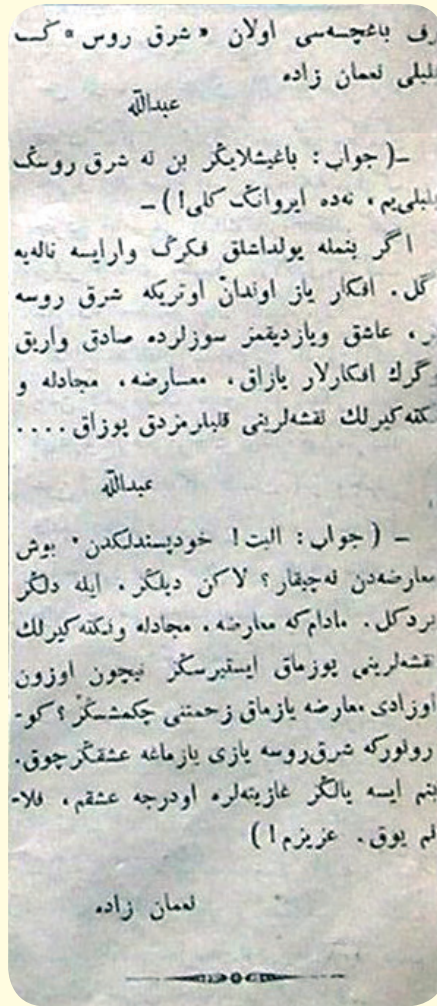 رف باغچه‌سی اولان « شرق روس » ڭ
بلبلی نعمان زاده
عبدالله
ـ( جواب : باغیشلایڭز بن نه شرق روسڭ
بلبلی‌یم ، نه‌ده ایروانڭ کلی ! ) ـ
اگر بنمله یولداشلق فکرڭ وارایسه ناله‌یه
گل . افکار یاز اوندانڭ اوتریکه شرق روسه
ـر ، عاشق ویازدیقمز سوزلرده صادق واریق
گرك افکارلار یازاق ، معارضه ، مجادله و
نکته‌کیرلك نقشه‌لرینی قلبلرمزدق پوزاق ....
عبدالله
ـ ( جواب : البت ! خودپسندلکدن ٠ بوش
معارضه‌دن نه‌چیقار ؟ لاکن دیلڭز . ایله دلڭز
بردکل . مادام‌که معارضه ، مجادله ونکته‌کیرلك
نقشه‌لرینی پوزماق ایستیرسڭز نیچون اوزون
اوزادی معارضه یازماق زحمتنی چکمشسڭز ؟ کو-
رولورکه شرق‌روسه یازی یازماغه عشقڭز چوق .
بنم ایسه یالڭز غازیته‌لره اودرجه عشقم ، فلا-
نم یوق . عزیزم ! )
نعمان زاده